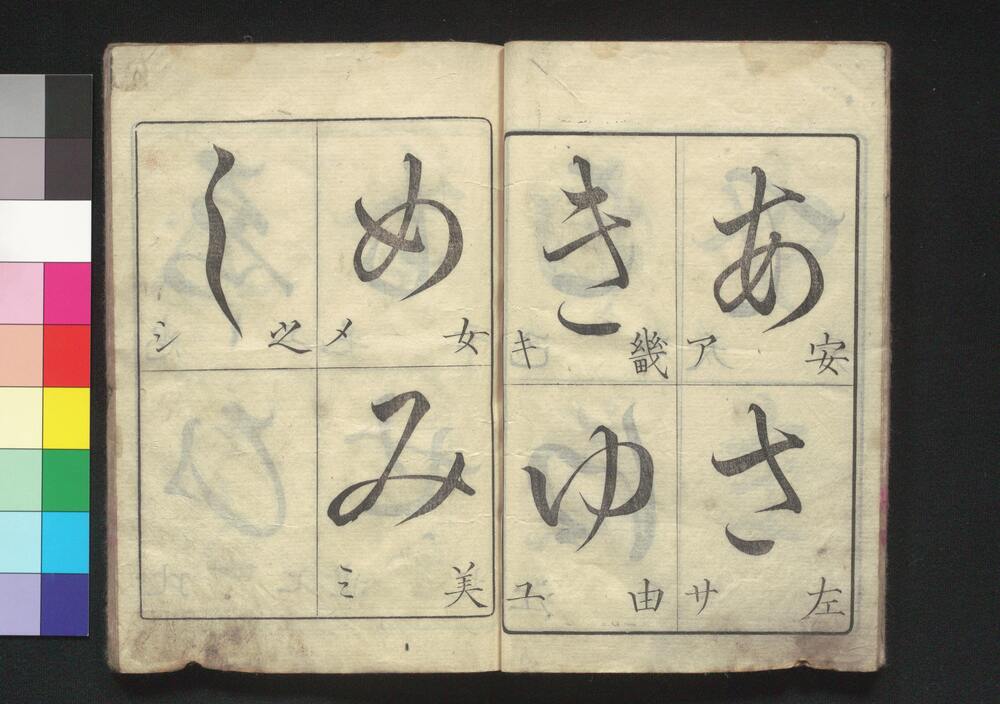 あ
安 ア
さ
左 サ
き
畿 キ
ゆ
由 ユ
め
女 メ
み
美 ミ
し
之 シ